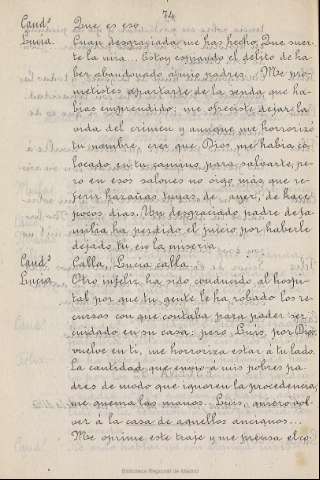 74
Cand.º Que es eso.
Lucia. Cuan desgraciada me has hecho. Que suer-
te la mia... Estoy espiando el delito de ha-
ber abandonado a mis padres... Me pro-
metistes apartarte de la senda que ha-
bias emprendido; me ofreciste dejar la
vida del crimen y aunque me horrorizó
tu nombre, creí que Dios me habia co-
locado en tu camino para salvarte, pe-
ro en esos salones no oigo más que re-
ferir hazañas tuyas, de ayer, de hace
pocos dias. Un desgraciado padre de fa-
milia ha perdido el juicio por haberle
dejado tu en la miseria.
Cand.º Calla, Lucia calla...
Lucia. Otro infeliz ha sido conducido al hospi-
tal por que tu gente le ha robado los re-
cursos con que contaba para poder ser
cuidado en su casa; pero Luis, por Dios
vuelve en ti, me horroriza estar a tu lado.
La cantidad que envio a mis pobres pa-
dres de modo que ignoren la procedencia,
me quema las manos. Luis, quiero vol-
ver á la casa de aquellos ancianos...
Me oprime este traje y me prensa el co-
Biblioteca Regional de Madrid